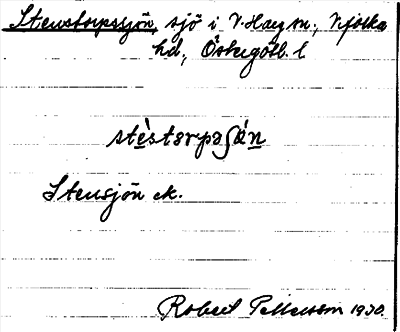 Stenstorpssjön, sjö i V. Haz sn., Ydre
hd., Östergötl. l
stèstorpaʃǿn
Stensjön ek.
Robert Pettersson 1930.